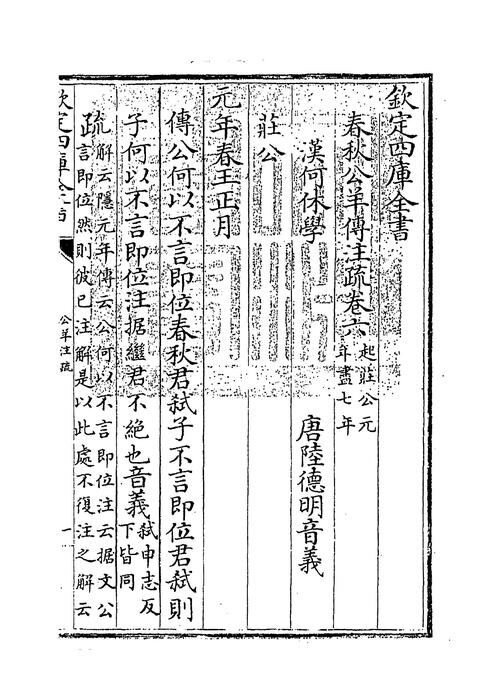 欽定四庫全書
春秋公羊傳注疏卷六起莊公元
年盡七年
漢何休學
唐陸德明音義
莊公
元年春王正月
傳公何以不言即位春秋君弑子不言即位君弑則
子何以不言即位注据繼君不絶也音義弑申志反
下皆同
疏解云隱元年傳云公何以不言即位注云据文公
言即位然則彼已注解是以此處不復注之解云
欽定四庫全書
公羊注疏
一